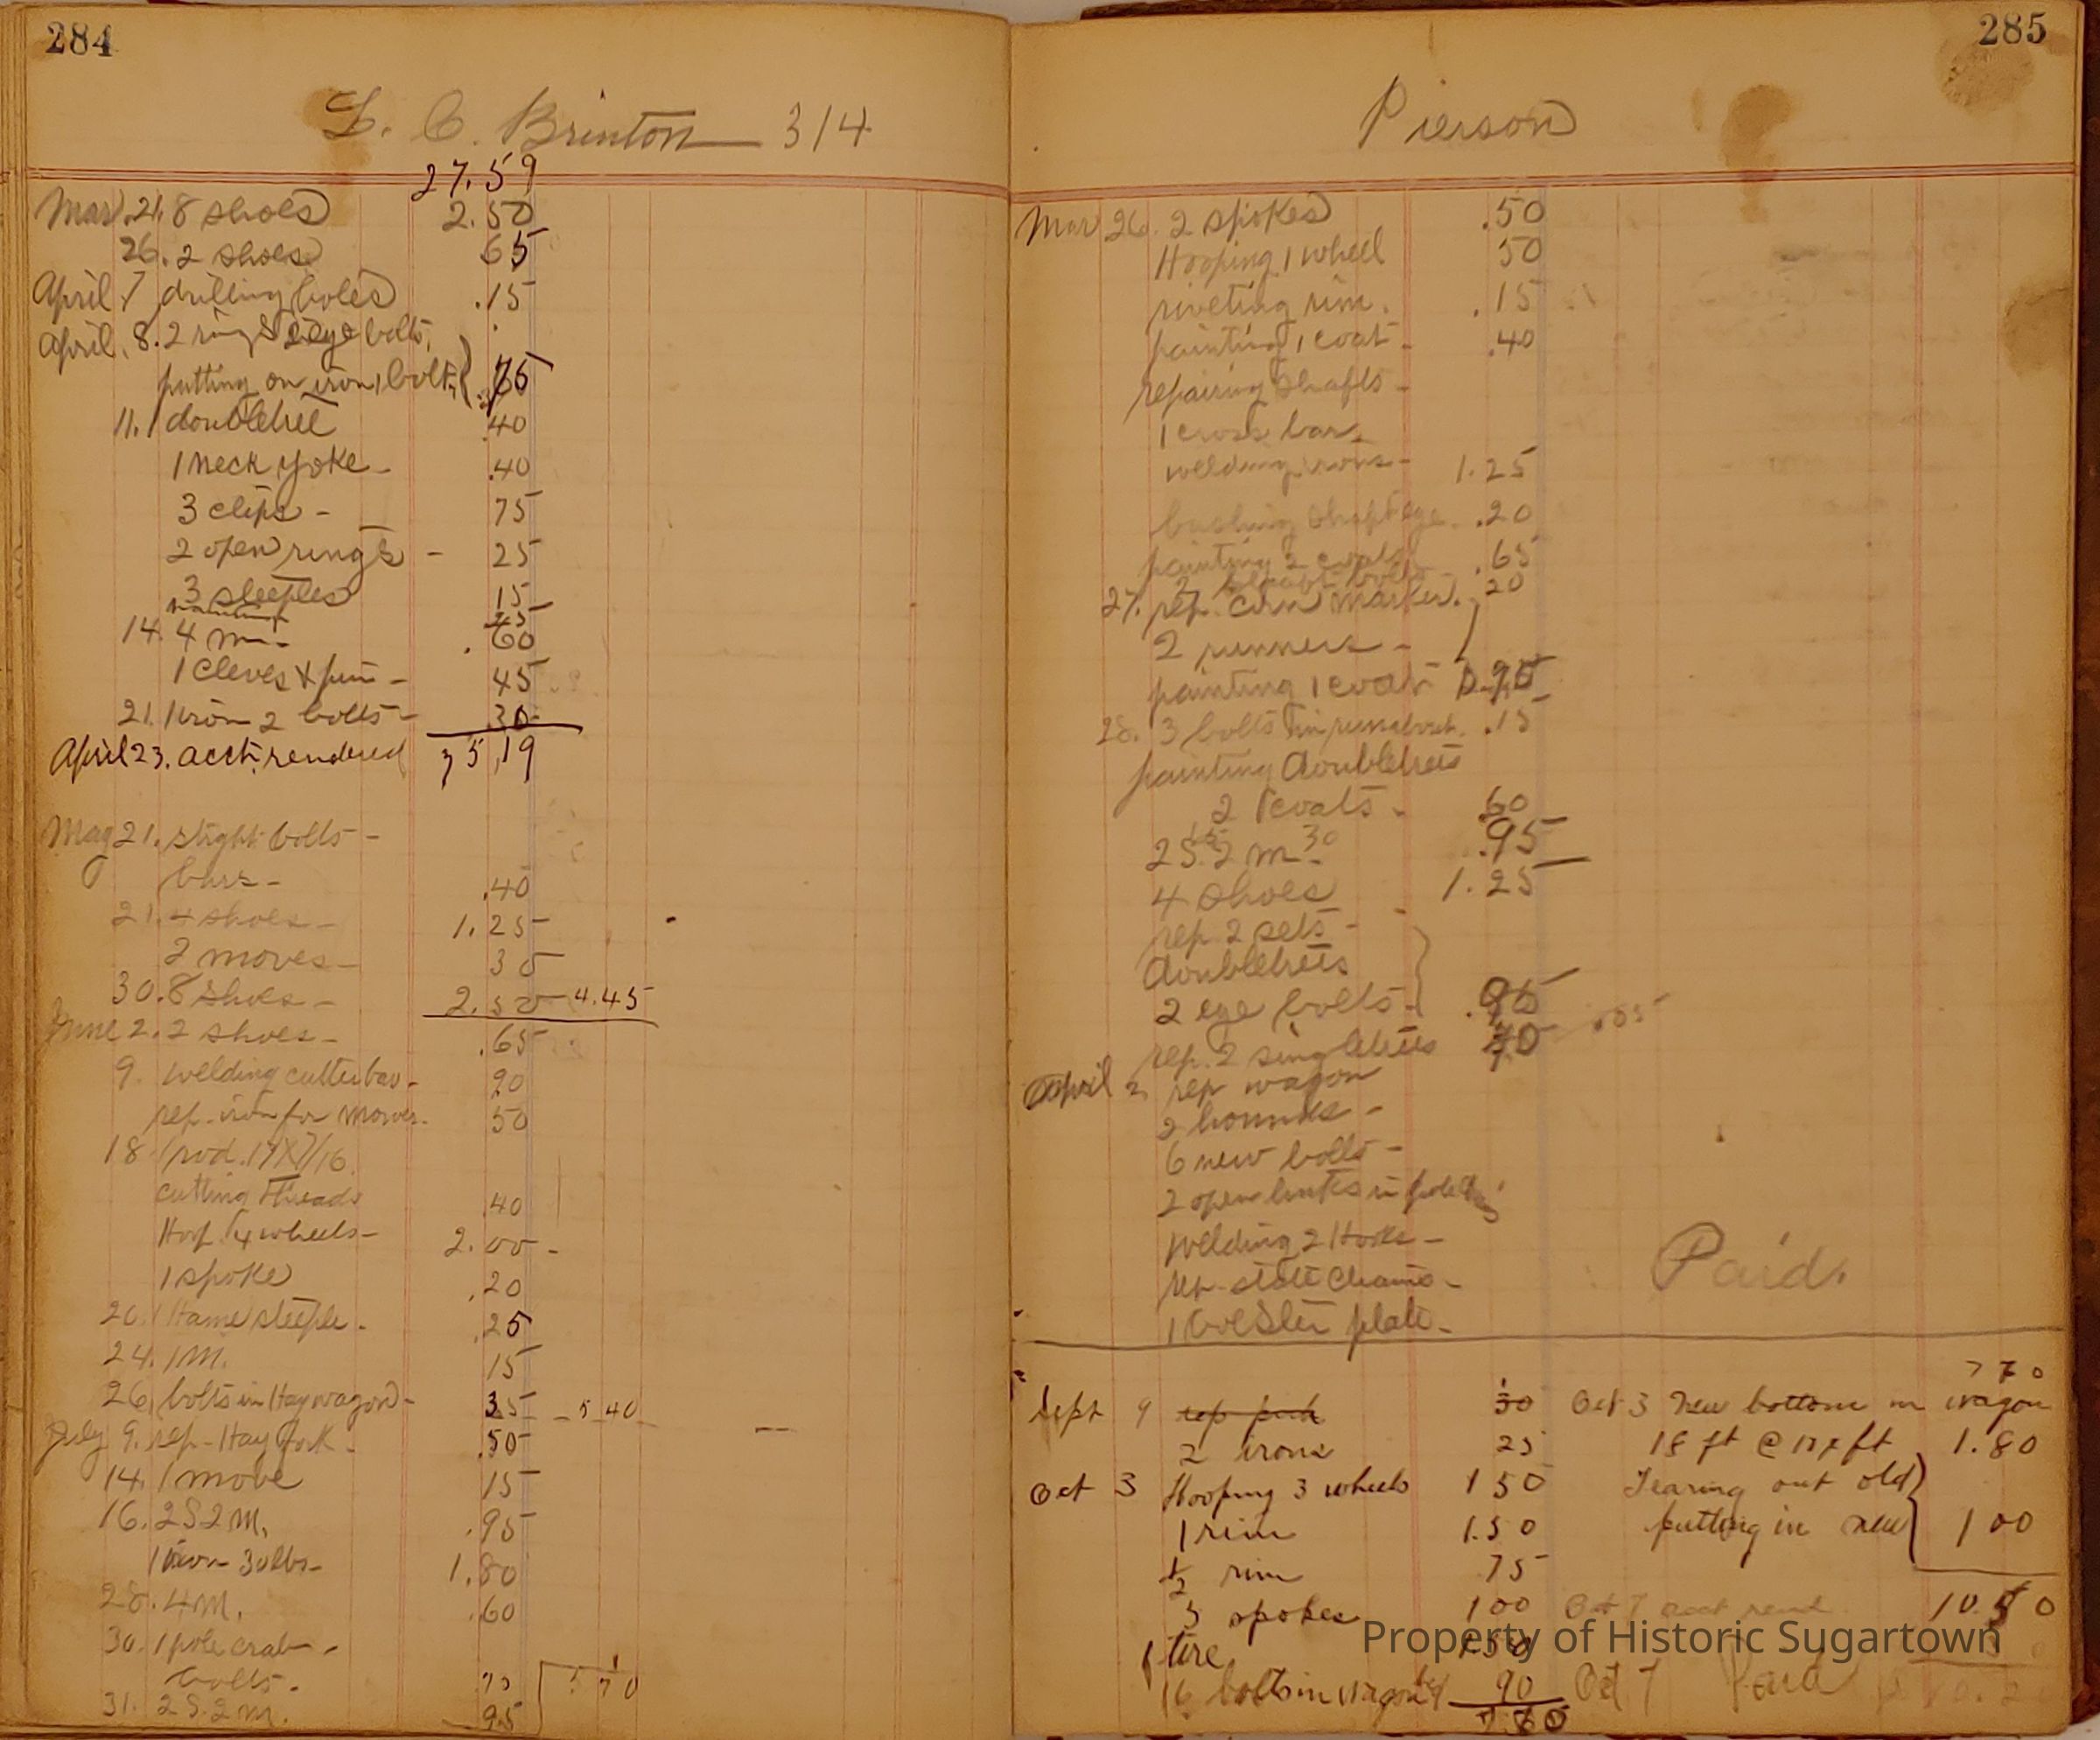 284
L. C. Brinton 314
27.59
Mar. 21. 8 shoes 2.50
26. 2 shoes 65
April 7 drilling holes .15
April. 8. 2 rings 2 eye bolts,
putting on iron, 1 bolt,
11. 1 doubletree .40
1 neck yoke - .40
3 clips - 75
2 open rings - 25
3 steeples 15
14. 4 m. - .60
1 cleves & pin - 45
21. 1 iron 2 bolts - 30
April 23. acct. rendered 35,19
May 21. slight bolts -
bars - .40
21. 4 shoes - 1.25
2 moves - 30
30. 8 shoes - 2.50 4.45
June 2. 2 shoes - .65
9. welding cutterbar - 90
rep. iron for mower - 50
18. 1 rod. 17X7/16
cutting threads .40
Hoop. 4 wheels - 2.00 -
1 spoke .20
20. 1 Hame steeple - .25
24. 1 m. 15
26, bolts in Hay wagon - 35 - 5 40
July 9. rep - Hay fork - .50
14. 1 move 15
16. 2 S 2 m. .95
1 iron - 30 lbs - 1.80
28. 4 m. .60
30. 1 pole crab -
bolts. 75 5 70
31. 2 S. 2 m. 95
285
Pierson
Mar 26. 2 spokes .50
Hooping 1 wheel 50
riveting rim. .15
painting 1 coat - .40
repairing shafts -
1 cross bar,
welding irons - 1.25
bushing shaft eye .20
painting 2 coats .65
2 shaft bolts 20
27. rep. corn marker.
2 runners -
painting 1 coat
28. 3 bolts in runabout. .15
painting doubletrees
2 coats - .60
2 S. 2 m. 30 .95
4 shoes 1.25
rep. 2 sets -
doubletrees
2 eye bolts -
rep. 2 singletrees
April 2, rep wagon
2 hounds -
6 new bolts -
2 open links in
welding 2 Hooks -
rep - chains -
1 bolster plate -
Paid.
Sept 9 rep 30
2 irons 25
Oct 3 Hooping 3 wheels 1 50
1 rim 1.50
1/2 rim 75
5 spokes 1 00
1 tire 1 50
16 bolts in wagon 90
7.80
7 70
Oct 3 New bottom in wagon
18 ft @ ft 1.80
Tearing out old
putting in new 1 00
Oct 7 acct rend 10.50
Oct 7 Paid
Property of Historic Sugartown